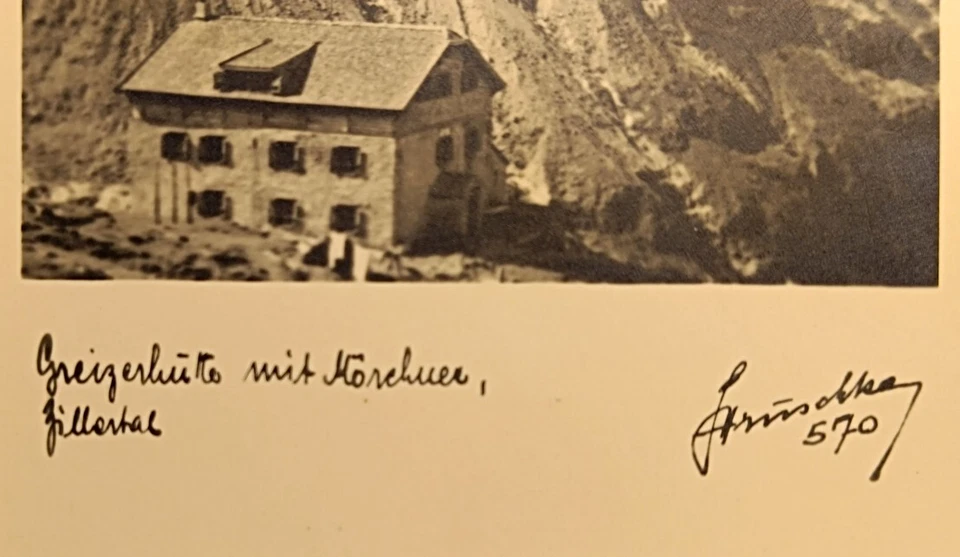 Greizerhütte mit Mörchner,
Zillertal
Hruschka
570